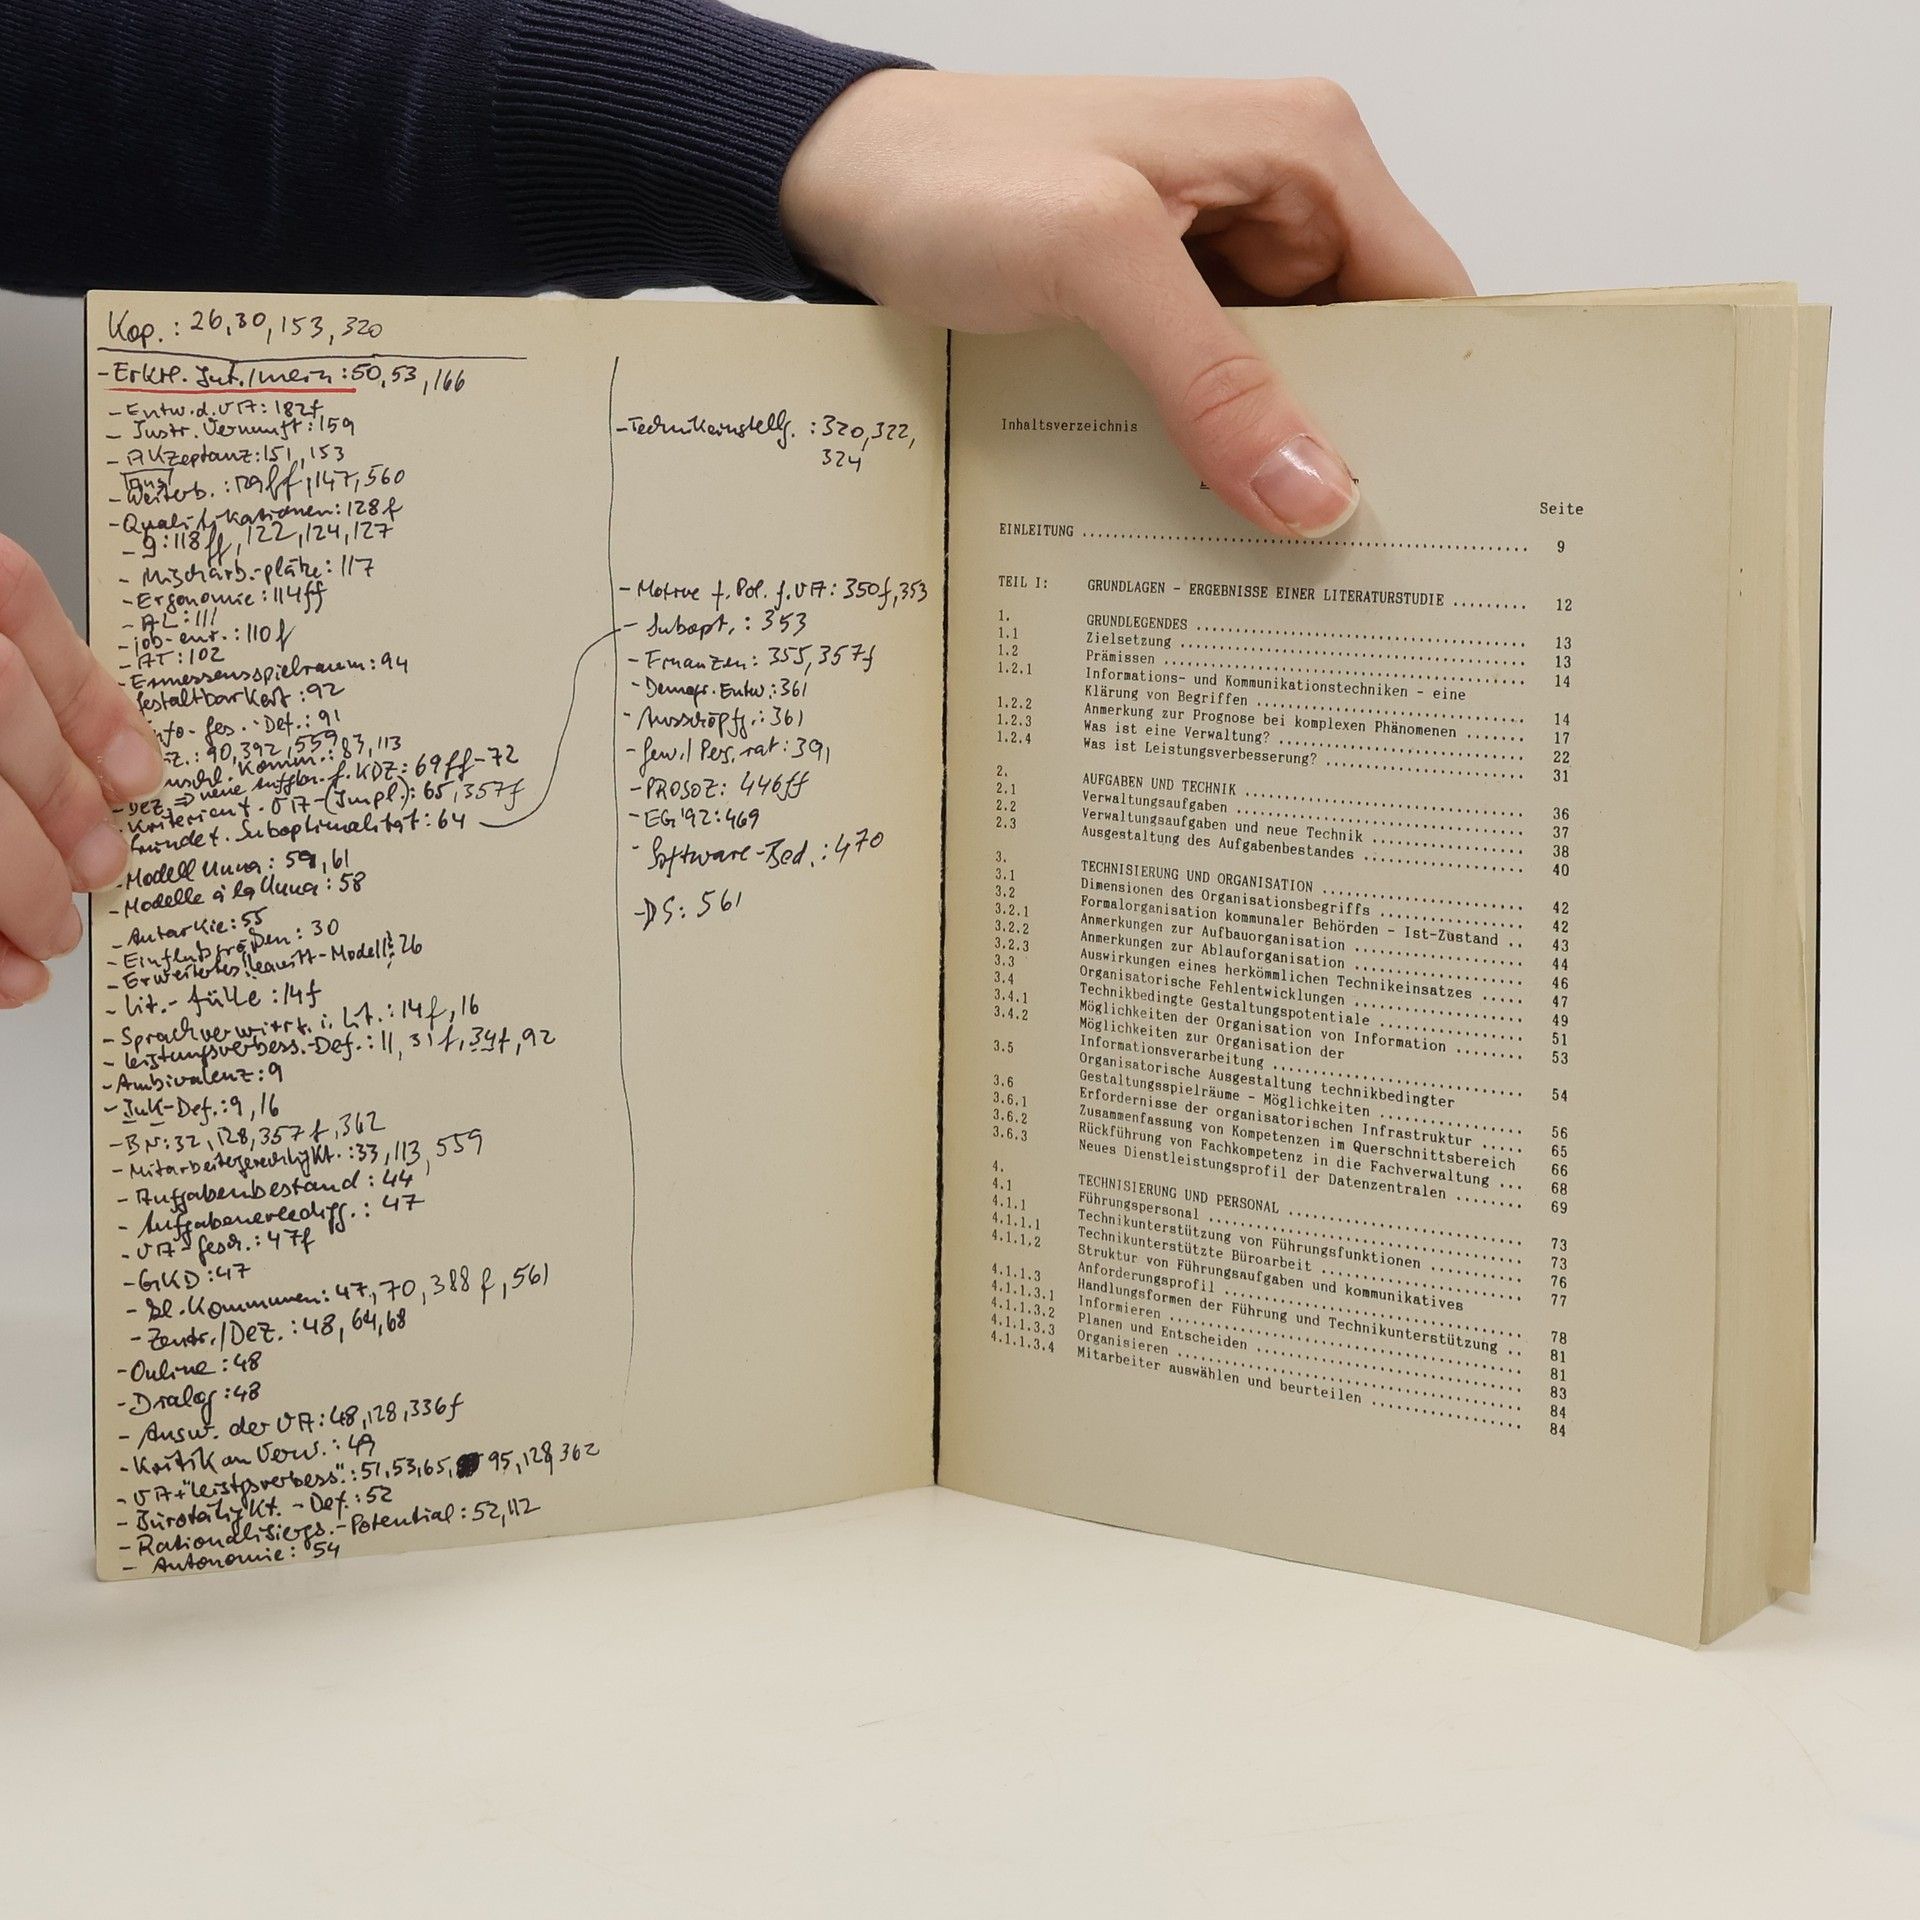 Kop.: 26, 30, 153, 320
- Erkl. Int./mein: 50, 53, 166
- Entw. d. VA: 182f
- Instr. Vernunft: 159
- Akzeptanz: 151, 153
- Weiterb.: ff, 147, 560
- Qualifikationen: 128f
- g: 118ff, 122, 124, 127
- Mischarb.-plätze: 117
- Ergonomie: 114ff
- AL: 111
- job-enr.: 110f
- AT: 102
- Ermessensspielraum: 94
Gestaltbarkeit: 92
Info-Ges.-Def.: 91
Z.: 90, 392, 559
Komm.: 83, 113
- Dez. => neue Aufgbn. f. KDZ: 69ff-72
- Kriterien f. VA-(Impl.): 65, 357f
Suboptimalität: 64
- Modell Unna: 59, 61
- Modelle à la Unna: 58
- Autarkie: 55
- Einflußgrößen: 30
- Erweitertes Leavitt-Modell: 26
- Lit.-Fülle: 14f
- Sprachverwirrt. i. Lit.: 14f, 16
- Leistungsverbess.-Def.: 11, 31f, 34f, 92
- Ambivalenz: 9
- IuK-Def.: 9, 16
- BN: 32, 128, 357f, 362
- Mitarbeitergerechtigkt.: 33, 113, 559
- Aufgabenbestand: 44
- Aufgabenerledigg.: 47
- VA-Gesch.: 47f
- GKD: 47
- Kl. Kommunen: 47, 70, 388f, 561
- Zentr./Dez.: 48, 64, 68
- Online: 48
- Dialog: 48
- Ausw. der VA: 48, 128, 336f
- Kritik an Verw.: 49
- VA+"Leistgsverbess": 51, 53, 65, 95, 128, 362
- Bürotätigkt.-Def.: 52
- Rationalisiergs.-Potential: 52, 112
- Autonomie: 54
- Technikeinstellg.: 320, 322,
324
- Motive f. Pol. f. VA: 350f, 353
- Subopt.: 353
- Finanzen: 355, 357f
- Demogr. Entw.: 361
- Ausschöpfg.: 361
- Gew./Pers.rat: 391
- PROSOZ: 446ff
- EG '92: 469
- Software-Bed.: 470
- DS: 561
Inhaltsverzeichnis
Seite
EINLEITUNG ........ 9
TEIL I: GRUNDLAGEN - ERGEBNISSE EINER LITERATURSTUDIE ......... 12
1. GRUNDLEGENDES ........ 13
1.1 Zielsetzung ........ 13
1.2 Prämissen ........ 14
1.2.1 Informations- und Kommunikationstechniken - eine
Klärung von Begriffen ........ 14
1.2.2 Anmerkung zur Prognose bei komplexen Phänomenen ....... 17
1.2.3 Was ist eine Verwaltung? ........ 22
1.2.4 Was ist Leistungsverbesserung? ........ 31
2. AUFGABEN UND TECHNIK ........ 36
2.1 Verwaltungsaufgaben ........ 37
2.2 Verwaltungsaufgaben und neue Technik ........ 38
2.3 Ausgestaltung des Aufgabenbestandes ........ 40
3. TECHNISIERUNG UND ORGANISATION ........ 42
3.1 Dimensionen des Organisationsbegriffs ........ 42
3.2 Formalorganisation kommunaler Behörden - Ist-Zustand .. 43
3.2.1 Anmerkungen zur Aufbauorganisation ........ 44
3.2.2 Anmerkungen zur Ablauforganisation ........ 46
3.2.3 Auswirkungen eines herkömmlichen Technikeinsatzes ..... 47
3.3 Organisatorische Fehlentwicklungen ........ 49
3.4 Technikbedingte Gestaltungspotentiale ........ 51
3.4.1 Möglichkeiten der Organisation von Information ........ 53
3.4.2 Möglichkeiten zur Organisation der
Informationsverarbeitung ........ 54
3.5 Organisatorische Ausgestaltung technikbedingter
Gestaltungsspielräume - Möglichkeiten ........ 56
3.6 Erfordernisse der organisatorischen Infrastruktur .... 65
3.6.1 Zusammenfassung von Kompetenzen im Querschnittsbereich 66
3.6.2 Rückführung von Fachkompetenz in die Fachverwaltung ... 68
3.6.3 Neues Dienstleistungsprofil der Datenzentralen ....... 69
4. TECHNISIERUNG UND PERSONAL ........ 73
4.1 Führungspersonal ........ 73
4.1.1 Technikunterstützung von Führungsfunktionen ........ 76
4.1.1.1 Technikunterstützte Büroarbeit ........ 77
4.1.1.2 Struktur von Führungsaufgaben und kommunikatives
Anforderungsprofil ........ 78
4.1.1.3 Handlungsformen der Führung und Technikunterstützung .. 81
4.1.1.3.1 Informieren ........ 81
4.1.1.3.2 Planen und Entscheiden ........ 83
4.1.1.3.3 Organisieren ........ 84
4.1.1.3.4 Mitarbeiter auswählen und beurteilen ........ 84